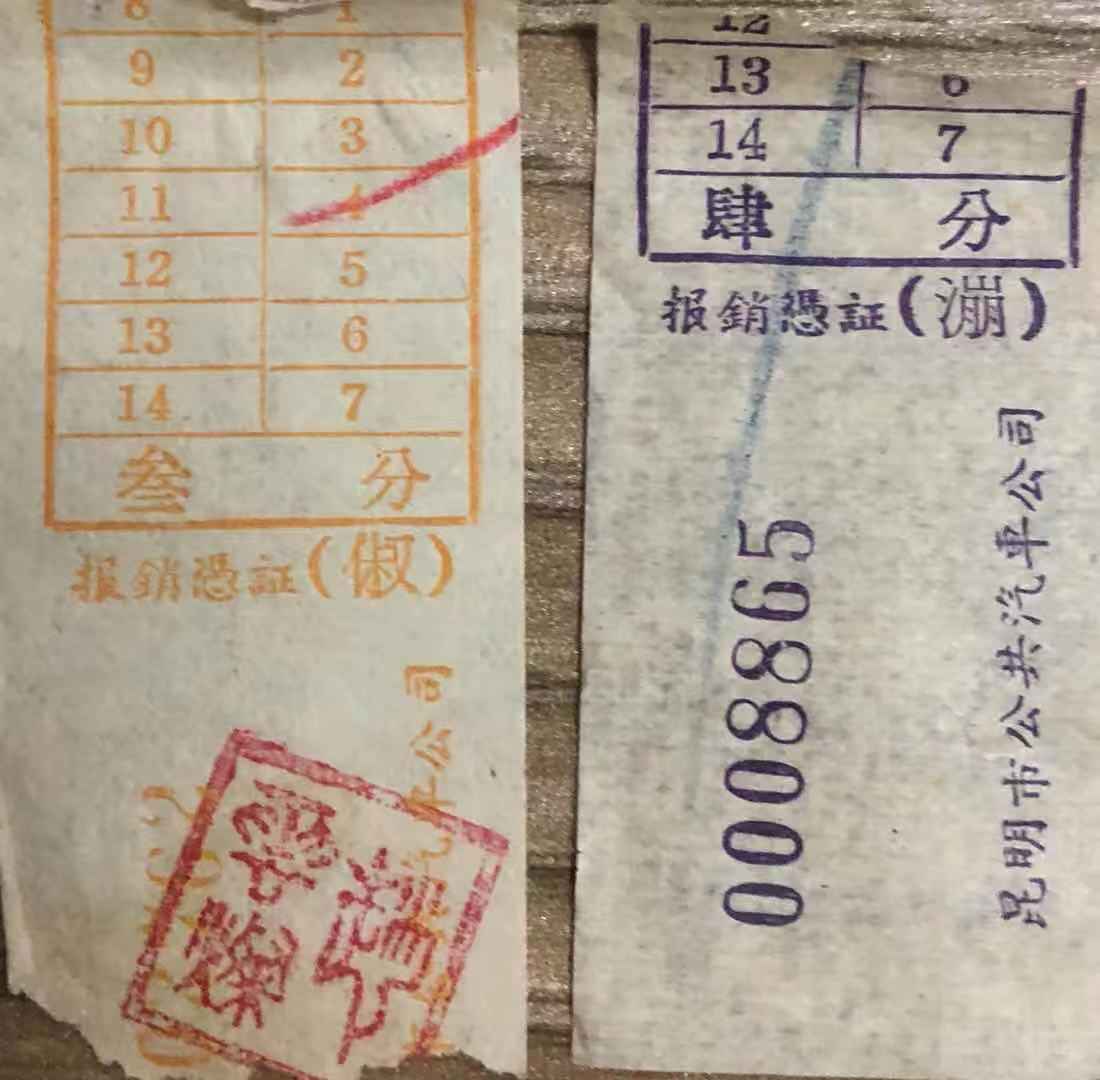 8 1
9 2
10 3
11 4
12 5
13 6
14 7
叁 分
报銷憑証(俶)
汽车公司
12
13 6
14 7
肆 分
报銷憑証(漰)
0008865
昆明市公共汽车公司